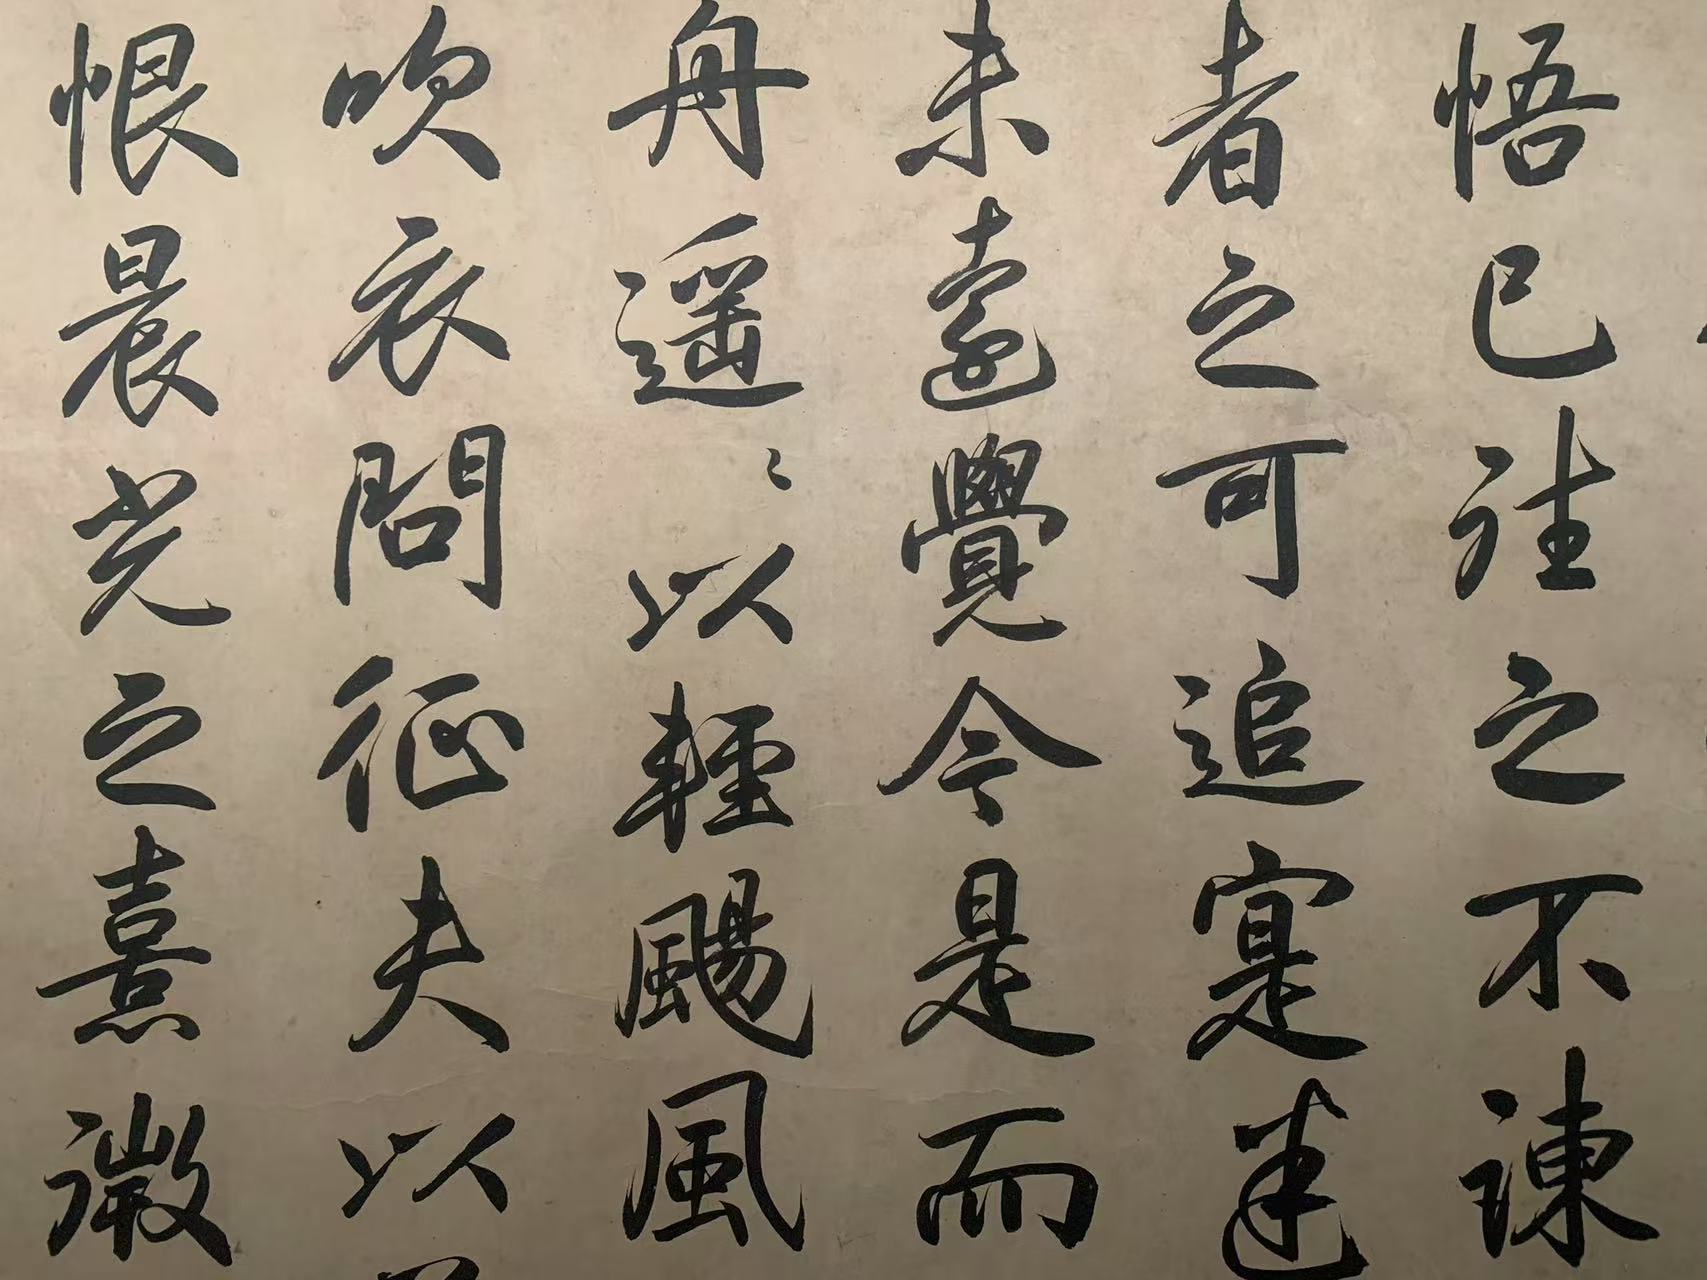 悟已往之不諫
者之可追寔迷
未遠覺今是而
舟遥〻以輕颺風
吹衣問征夫以
恨晨光之熹微